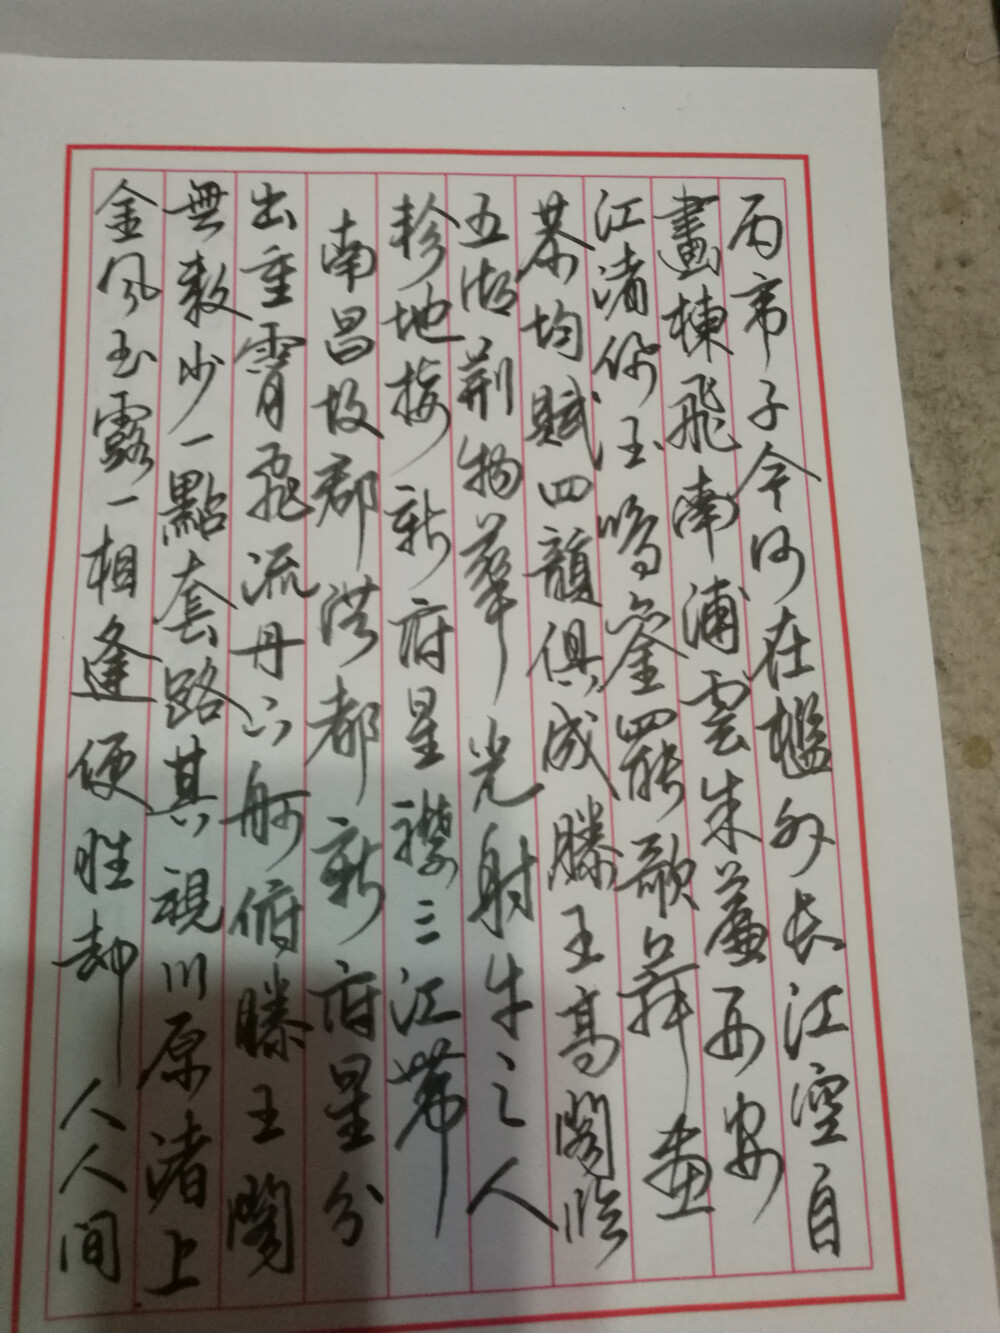 丙帝子今何在檻外長江空自
畫棟飛南浦雲朱簾再安
江渚佩玉鳴鑾罷歌舞畫
恭均賦四韻俱成滕王高閣臨
五湖荆物華光射牛之人
軫地接新府星襟三江帶
南昌故郡洪都新府星分
出重霄飛流丹下舸俯滕王閣
無数少一點套路其視川原渚上
金风玉露一相逢便胜却人人间